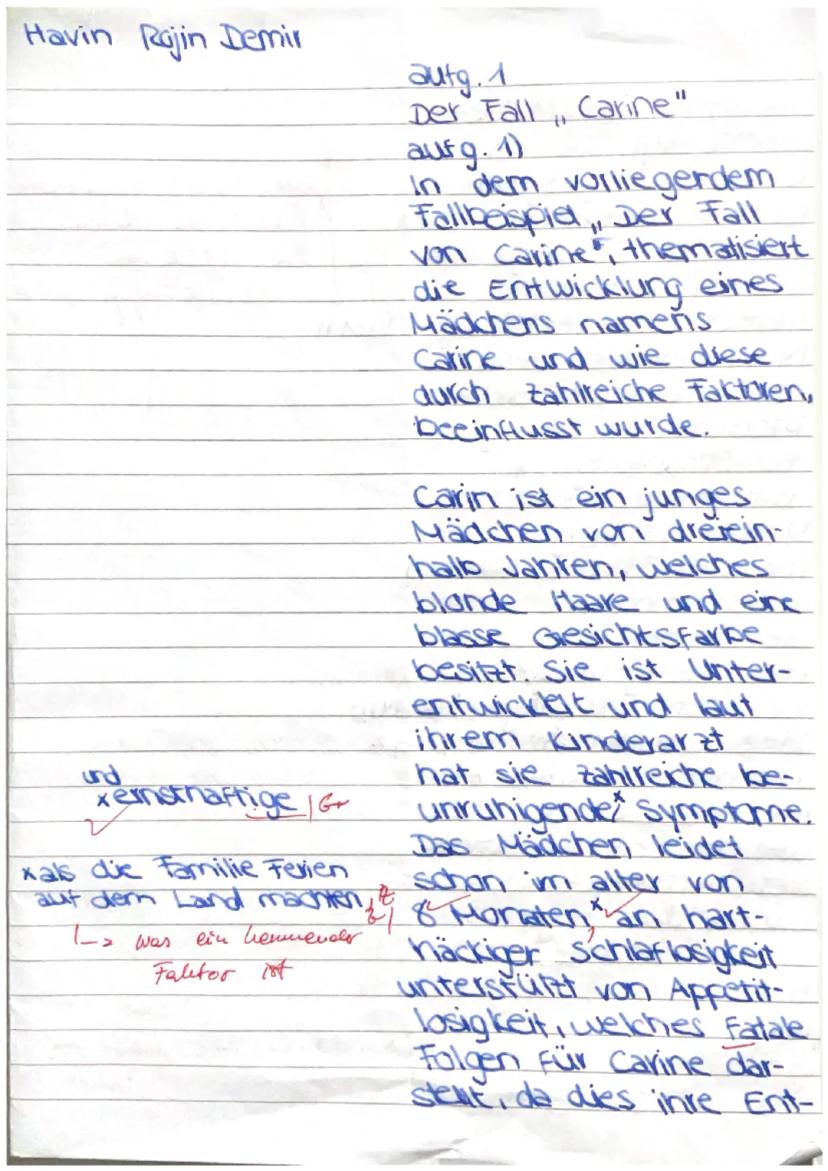 Havin Rojin Demir
aufg. 1
Der Fall „Carine"
aufg. 1)
In dem vorliegendem
Fallbeispiel „Der Fall
von Carine", thematisiert
die Entwicklung eines
Mädchens namens
Carine und wie diese
durch zahlreiche Faktoren,
beeinflusst wurde.
Carin ist ein junges
Mädchen von dreiein-
halb Jahren, welches
blonde Haare und eine
blasse Gesichtsfarbe
besitzt. Sie ist Unter-
entwickelt und laut
ihrem Kinderarzt
hat sie zahlreiche be-
und
x ernsthaftige | Gr
unruhigende x Symptome.
Das Mädchen leidet
x als die Familie Ferien
schon im alter von
auf dem Land machten, Z
8 Monaten, x an hart-
↳ was ein hemmender
Faktor ist
näckiger Schlaflosigkeit
unterstützt von Appetit-
losigkeit, welches fatale
Folgen für Carine dar-
stellt, da dies ihre Ent-